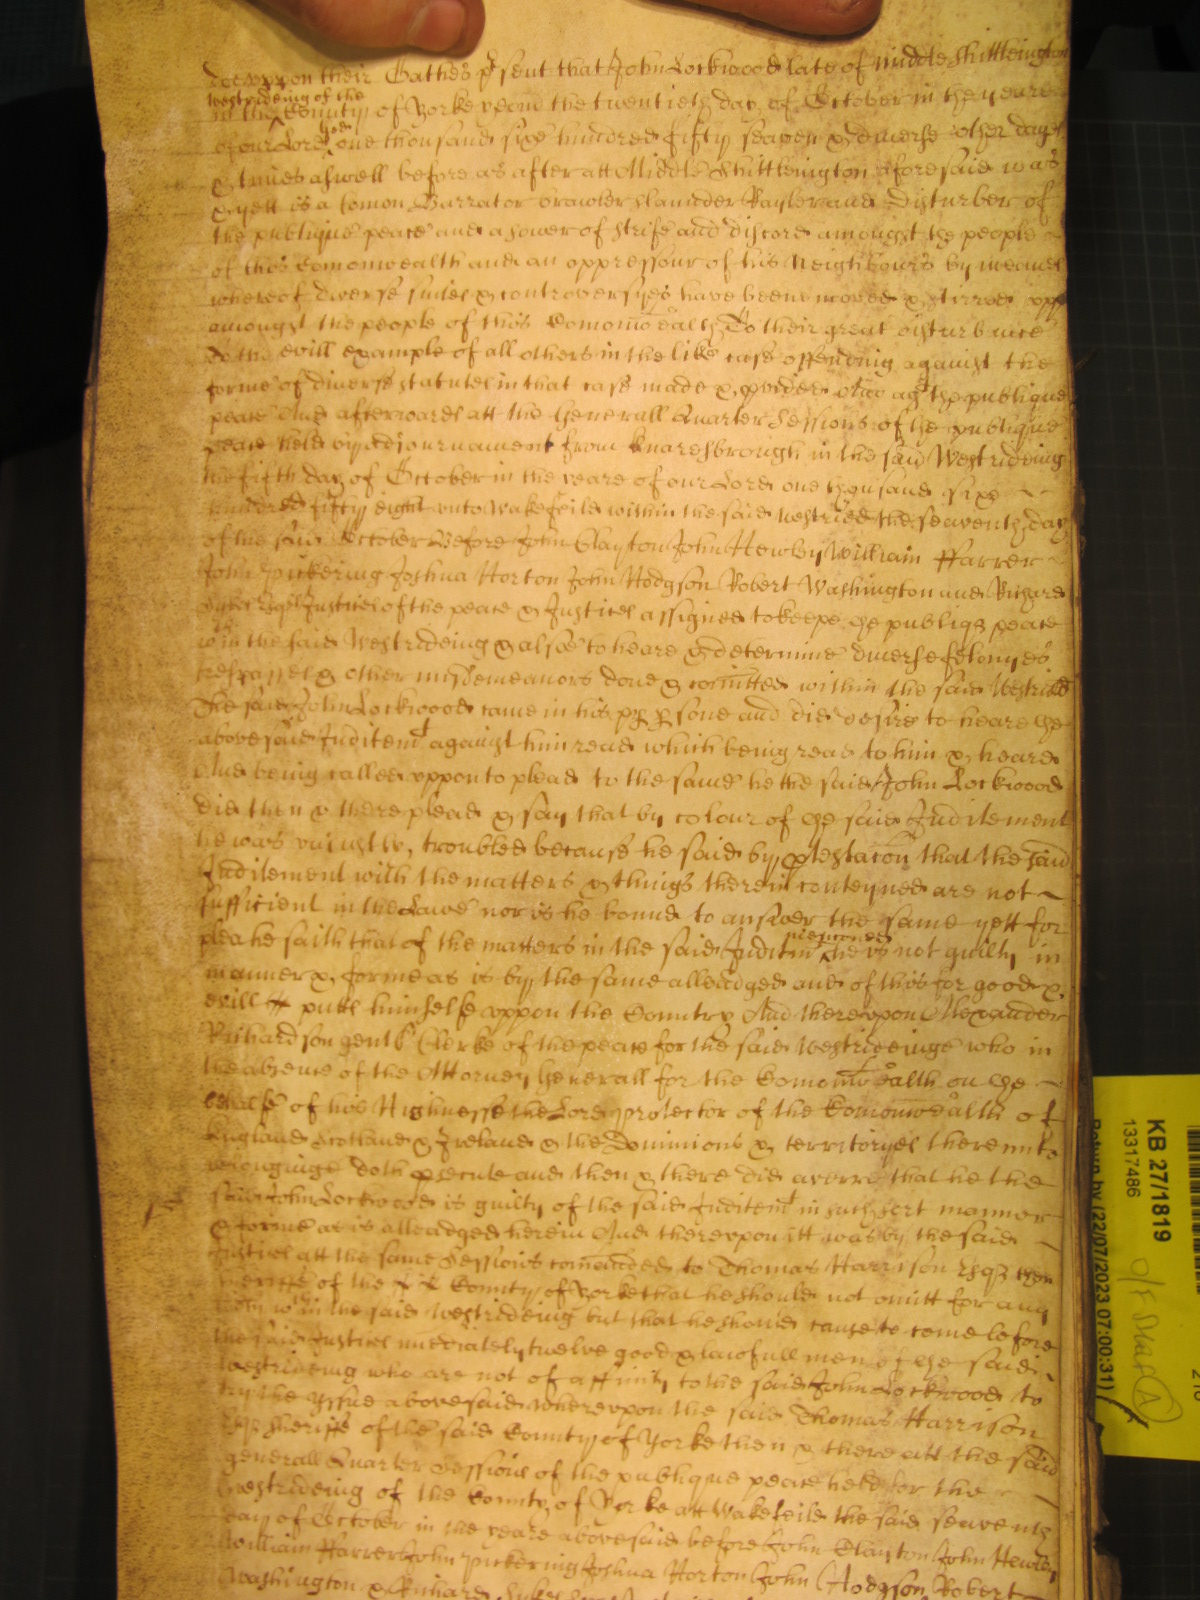 doe uppon their Oathes p'sent that John Lockwood late of Middle Shittleington
westrideing of the
in the County of Yorke yeom the twentieth day of October in the yeare
god
of our Lord one thousand sixe hundred fifty seaven & diverse other dayes
& tymes aswell before as after att Middle Shittleington aforesaid was
& yett is a comon Barrator brawler slaunder Rayler and Disturber of
the publique peace and a sower of strife and discord amongst the people
of this Comonwealth and an oppressour of his Neighbours by meanes
whereof diverse suites & controversyes have beene moved & stirred upp
amongst the people of this Comonwealth To their great disturbance
To the evill example of all others in the like case offending against the
forme of diverse statutes in that case made & provided And agt the publique
peace And afterwards att the Generall Quarter Sessions of the publique
peace held by adiournament from Knaresbrough in the said Westrideing
the fifth day of October in the yeare of our Lord one thousand sixe
hundred fifty eight unto Wakefeild within the said Westrid the seaventh day
of the said October Before John Clayton John Hewley William Farrer
John Pickering Joshua Horton John Hodgson Robert Washington and Richard
Sykes Esqs Justices of the peace & Justices assigned to keepe the publiq peace
wthin the said Westrideing & alsoe to heare & determine diverse felonyes
trespasses & other misdemeanors done & comitted within the said Westrid
The said John Lockwood came in his pper psone and did desire to heare the
abovesaid Inditemt against him read which being read to him & heard
And being called uppon to plead to the same he the said John Lockwood
did then & there plead & say that by colour of the said Inditement
he was uniustly troubled because he said by ptestacon that the said
Inditement with the matters & things therein conteyned are not
sufficient in the Lawe nor is he bound to answer the same yett for
menconed
plea he saith that of the matters in the said Inditmt he is not guilty in
manner & forme as is by the same alleadged and of this for good &
evill putts himselfe uppon the Country And thereupon Alexander
Richardson gent Clerke of the peace for the said Westrideinge who in
the absence of the Attorney Generall for the Comonwealth on the
behalfe of his Highnesse the Lord protector of the Comonwealth of
England Scotland & Ireland & the Dominions & territoryes thereunto
belonginge doth psecute and then & there did averre that he the
said John Lockwood is guilty of the said Inditemt in such sort manner
& forme as is alleadged therein And thereupon itt was by the said
Justices att the same Sessions comanded to Thomas Harrison Esq then
Sheriffe of the County of Yorke that he should not omitt for any
liberty wthin the said Westrideing but that he should cause to come before
the said Justices imediately twelve good & lawfull men of the said
Westrideing who are not of affinity to the said John Lockwood to
try the yssue abovesaid whereupon the said Thomas Harrison
Esq Sheriffe of the said County of Yorke then & there att the said
generall Quarter Sessions of the publique peace held for the
Westrideing of the County of Yorke att Wakefeild the said seaventh
day of October in the yeare abovesaid before John Clayton John Hewley
William Farrer John Pickering Joshua Horton John Hodgson Robert
Washington & Richard Sykes
KB 27/1819
13317486
Return by (22/07/2023 07:00:31)